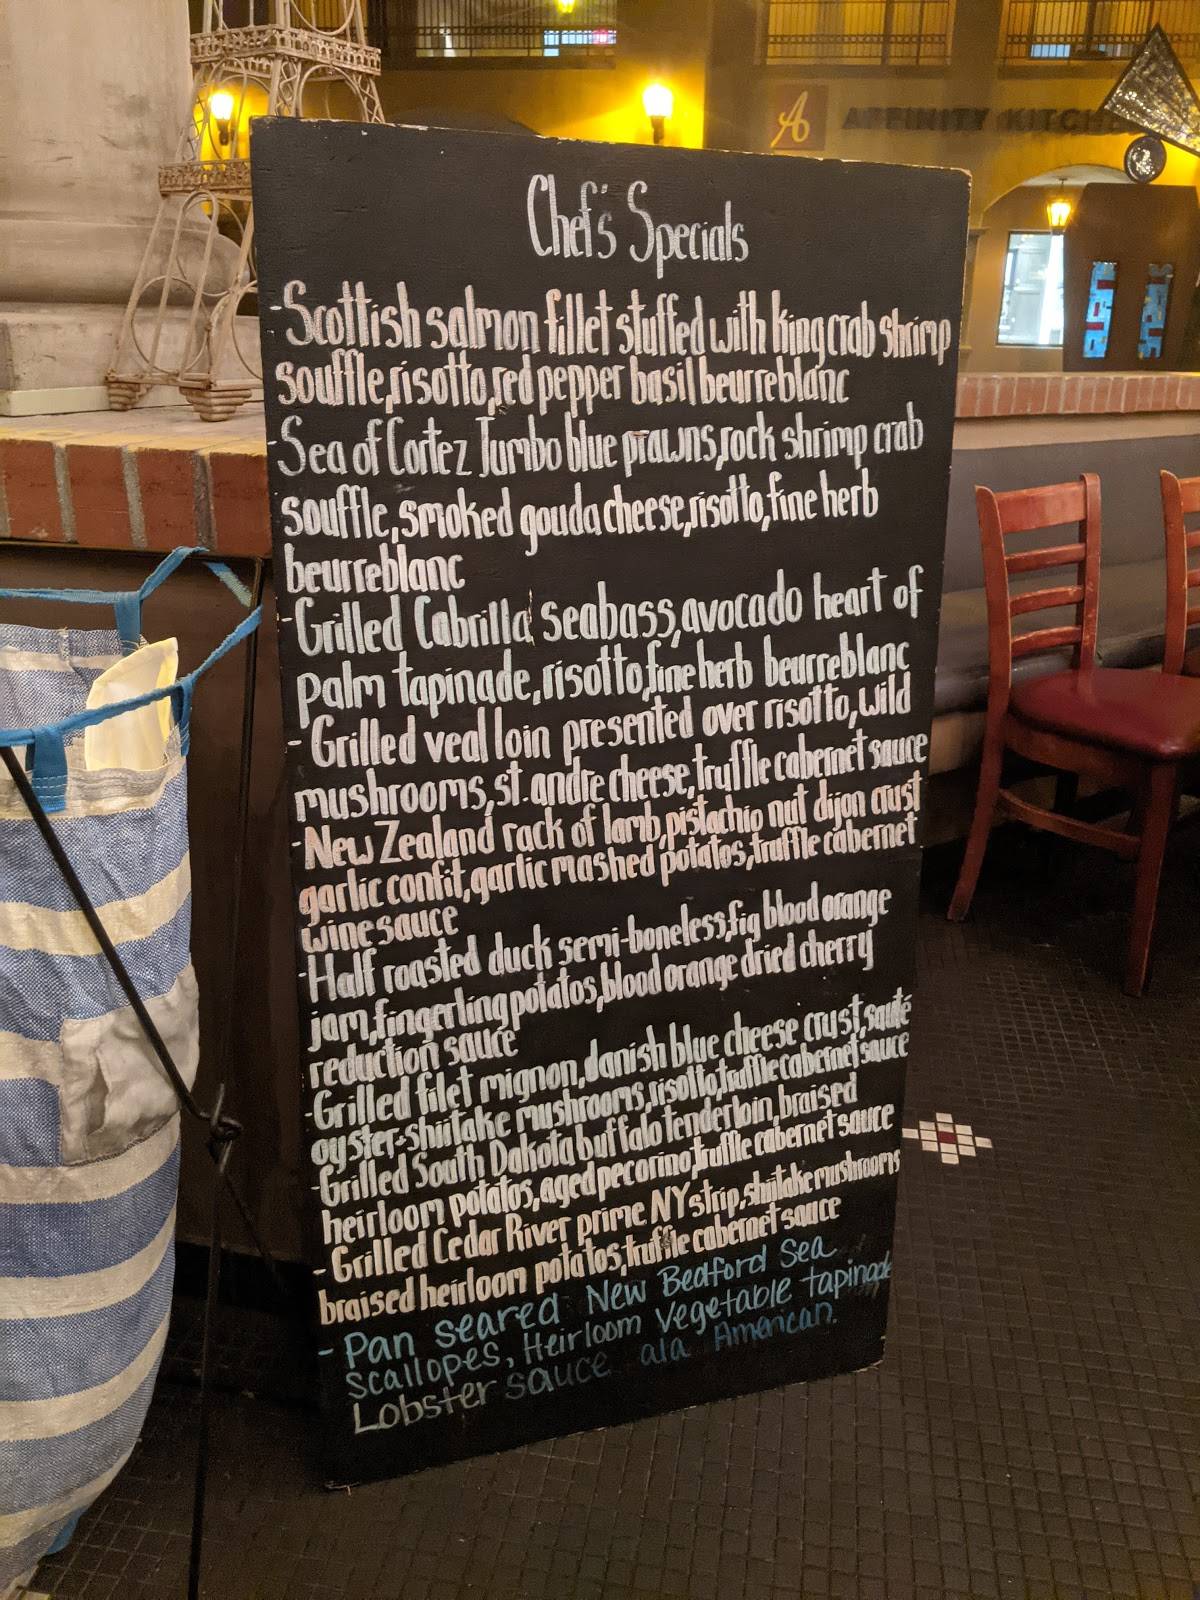 A AFFINITY KITCHE
Chef's Specials
-Scottish salmon fillet stuffed with king crab shrimp
souffle, risotto, red pepper basil beurreblanc
-Sea of Cortez Jumbo blue prawns, rock shrimp crab
souffle, smoked gouda cheese, risotto, fine herb
beurreblanc
-Grilled Cabrilla seabass, avocado heart of
palm tapinade, risotto, fine herb beurreblanc
-Grilled veal loin presented over risotto, wild
mushrooms, st. andre cheese, truffle cabernet sauce
-New Zealand rack of lamb, pistachio nut dijon crust
garlic confit, garlic mashed potatos, truffle cabernet
wine sauce
-Half roasted duck semi-boneless, fig blood orange
jam, fingerling potatos, blood orange dried cherry
reduction sauce
-Grilled filet mignon, danish blue cheese crust, sauté
oyster-shiitake mushrooms, risotto, truffle cabernet sauce
-Grilled South Dakota buffalo tenderloin, braised
heirloom potatos, aged pecorino, truffle cabernet sauce
-Grilled Cedar River prime NY strip, shiitake mushrooms
braised heirloom potatos, truffle cabernet sauce
-Pan seared New Bedford Sea
scallopes, Heirloom Vegetable tapinade
Lobster sauce ala American.